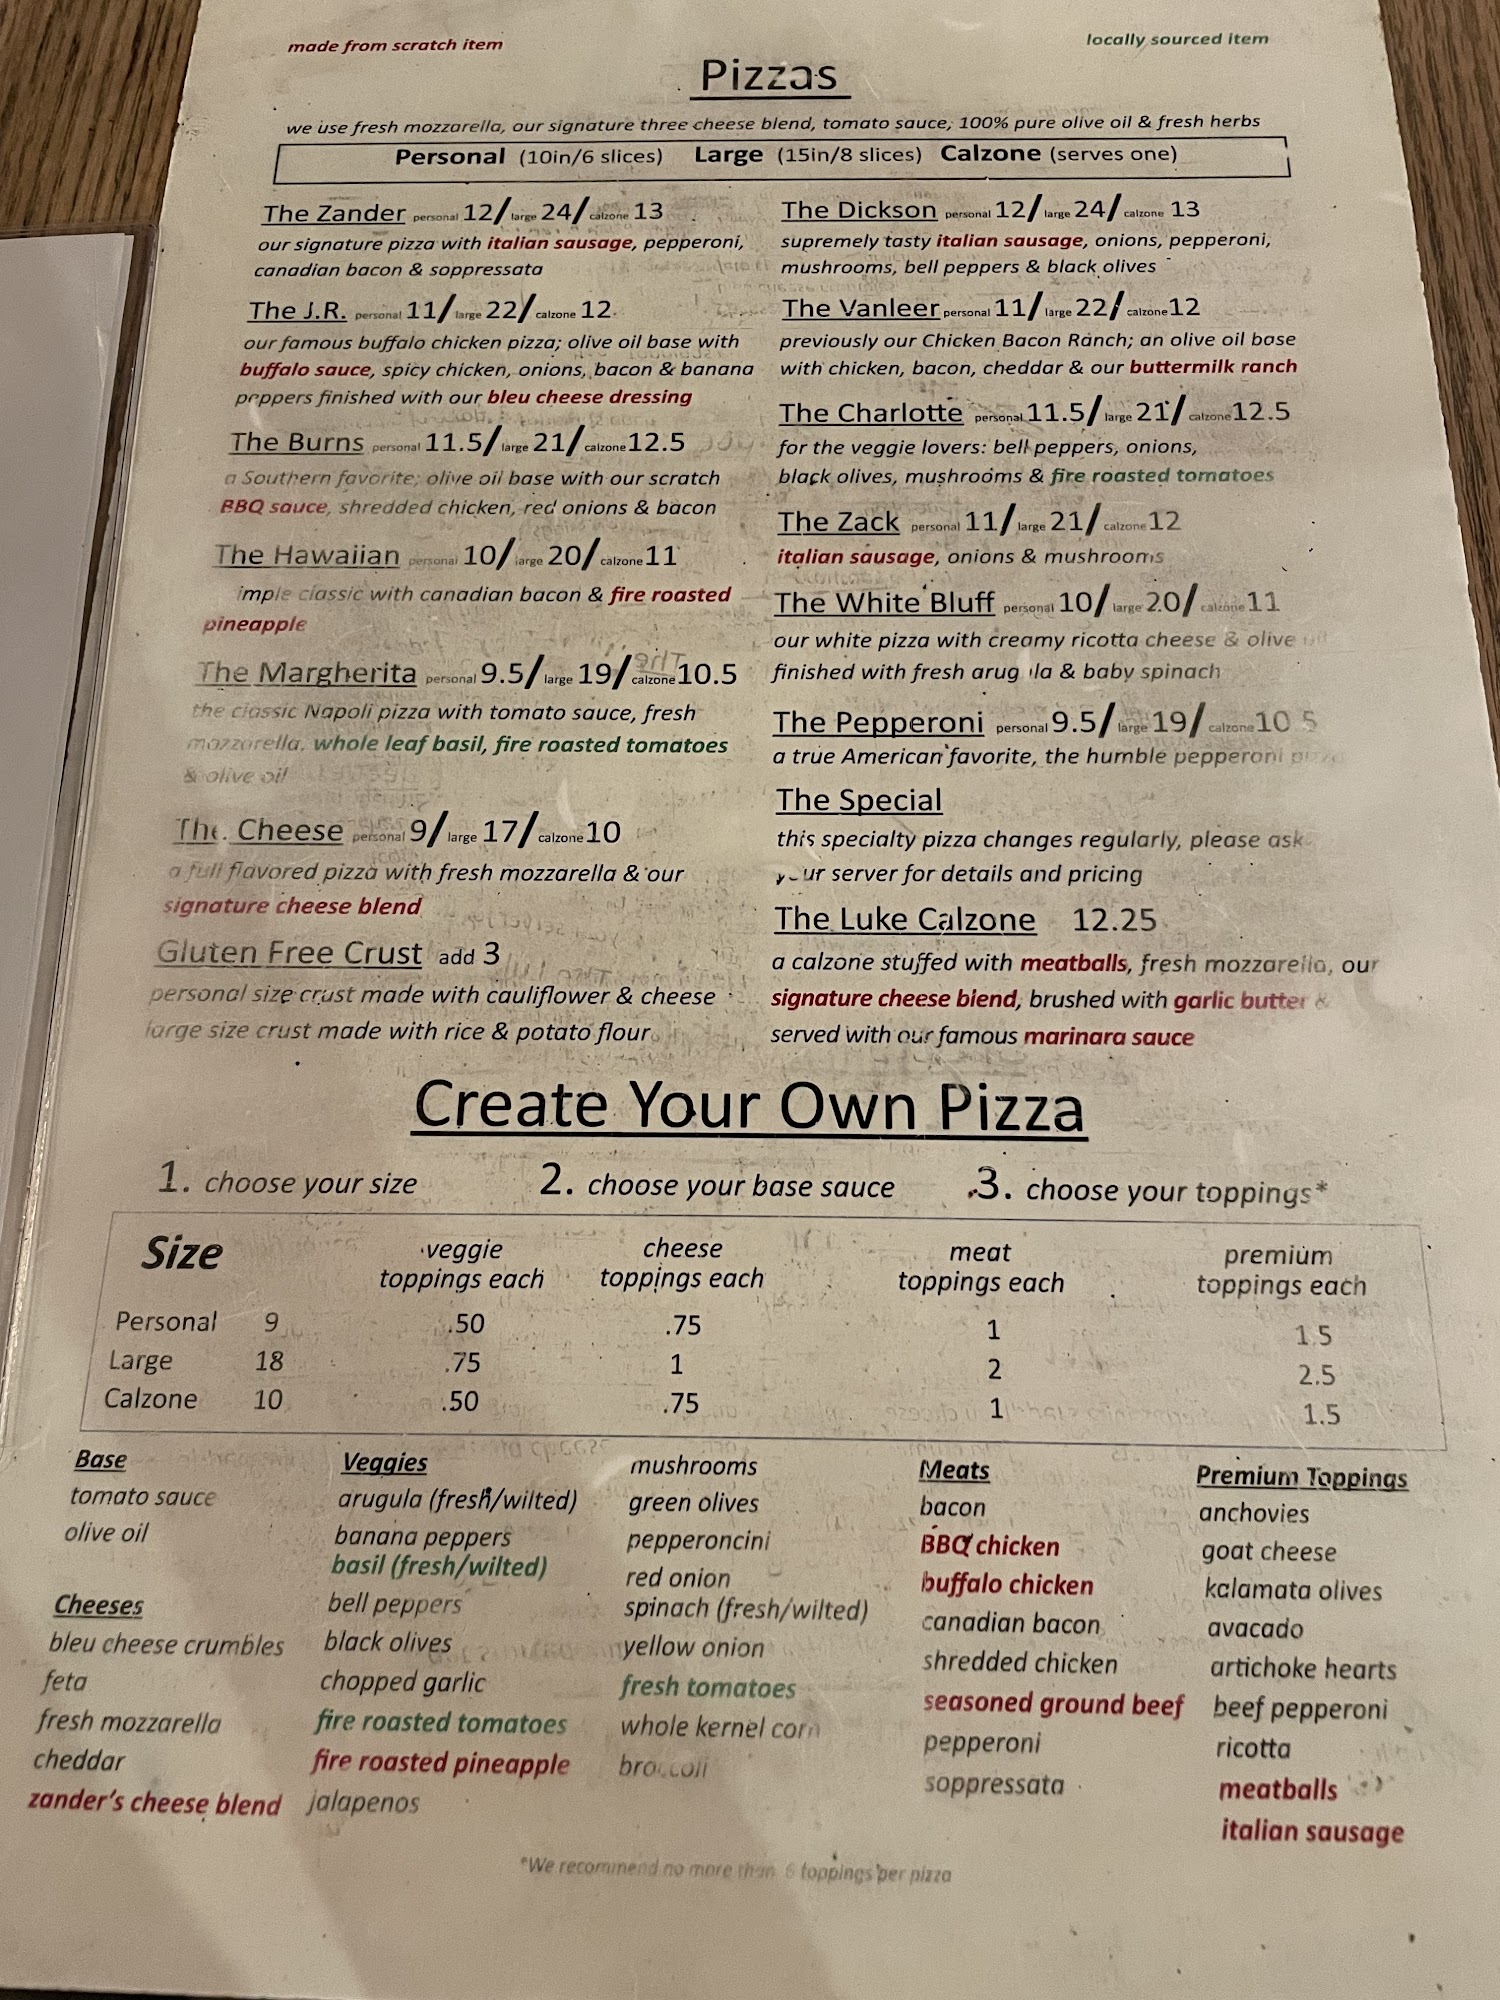 made from scratch item
locally sourced item
Pizzas
we use fresh mozzarella, our signature three cheese blend, tomato sauce, 100% pure olive oil & fresh herbs
Personal (10in/6 slices) Large (15in/8 slices) Calzone (serves one)
The Zander personal 12/ large 24/ calzone 13
our signature pizza with italian sausage, pepperoni,
canadian bacon & soppressata
The J.R. personal 11/ large 22/ calzone 12
our famous buffalo chicken pizza; olive oil base with
buffalo sauce, spicy chicken, onions, bacon & banana
peppers finished with our bleu cheese dressing
The Burns personal 11.5/ large 21/ calzone 12.5
a Southern favorite; olive oil base with our scratch
BBQ sauce, shredded chicken, red onions & bacon
The Hawaiian personal 10/ large 20/ calzone 11
imple classic with canadian bacon & fire roasted
pineapple
The Margherita personal 9.5/ large 19/ calzone 10.5
the classic Napoli pizza with tomato sauce, fresh
mozzarella, whole leaf basil, fire roasted tomatoes
& olive oil
The Cheese personal 9/ large 17/ calzone 10
a full flavored pizza with fresh mozzarella & our
signature cheese blend
Gluten Free Crust add 3
personal size crust made with cauliflower & cheese
large size crust made with rice & potato flour
The Dickson personal 12/ large 24/ calzone 13
supremely tasty italian sausage, onions, pepperoni,
mushrooms, bell peppers & black olives
The Vanleer personal 11/ large 22/ calzone 12
previously our Chicken Bacon Ranch; an olive oil base
with chicken, bacon, cheddar & our buttermilk ranch
The Charlotte personal 11.5/ large 21/ calzone 12.5
for the veggie lovers: bell peppers, onions,
black olives, mushrooms & fire roasted tomatoes
The Zack personal 11/ large 21/ calzone 12
italian sausage, onions & mushrooms
The White Bluff personal 10/ large 20/ calzone 11
our white pizza with creamy ricotta cheese & olive oil
finished with fresh arugula & baby spinach
The Pepperoni personal 9.5/ large 19/ calzone 10.5
a true American favorite, the humble pepperoni pizza
The Special
this specialty pizza changes regularly, please ask
your server for details and pricing
The Luke Calzone 12.25
a calzone stuffed with meatballs, fresh mozzarella, our
signature cheese blend, brushed with garlic butter &
served with our famous marinara sauce
Create Your Own Pizza
1. choose your size 2. choose your base sauce 3. choose your toppings*
Size veggie toppings each cheese toppings each meat toppings each premium toppings each
Personal 9 .50 .75 1 1.5
Large 18 .75 1 2 2.5
Calzone 10 .50 .75 1 1.5
Base
tomato sauce
olive oil
Cheeses
bleu cheese crumbles
feta
fresh mozzarella
cheddar
zander's cheese blend
Veggies
arugula (fresh/wilted)
banana peppers
basil (fresh/wilted)
bell peppers
black olives
chopped garlic
fire roasted tomatoes
fire roasted pineapple
jalapenos
mushrooms
green olives
pepperoncini
red onion
spinach (fresh/wilted)
yellow onion
fresh tomatoes
whole kernel corn
broccoli
Meats
bacon
BBQ chicken
buffalo chicken
canadian bacon
shredded chicken
seasoned ground beef
pepperoni
soppressata
Premium Toppings
anchovies
goat cheese
kalamata olives
avacado
artichoke hearts
beef pepperoni
ricotta
meatballs
italian sausage
*We recommend no more than 6 toppings per pizza